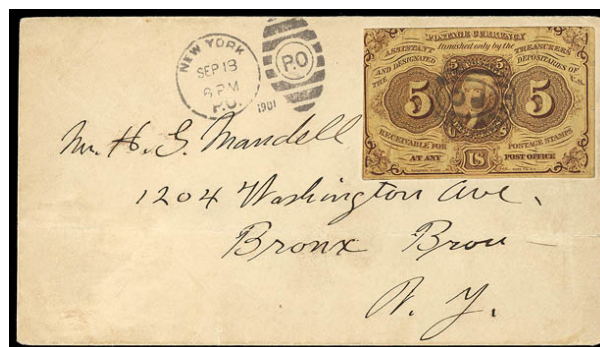 NEW YORK
SEP 13
6 PM
P.O.
1901
P.O
POSTAGE CURRENCY
furnished only by the
ASSISTANT TREASURERS
AND DESIGNATED DEPOSITARIES OF
THE U.S.
5 5 5 5
RECEIVABLE FOR POSTAGE STAMPS
AT ANY US POST OFFICE
Mr. H. G. Mandell
1204 Washington Ave.
Bronx Bron
N. Y.